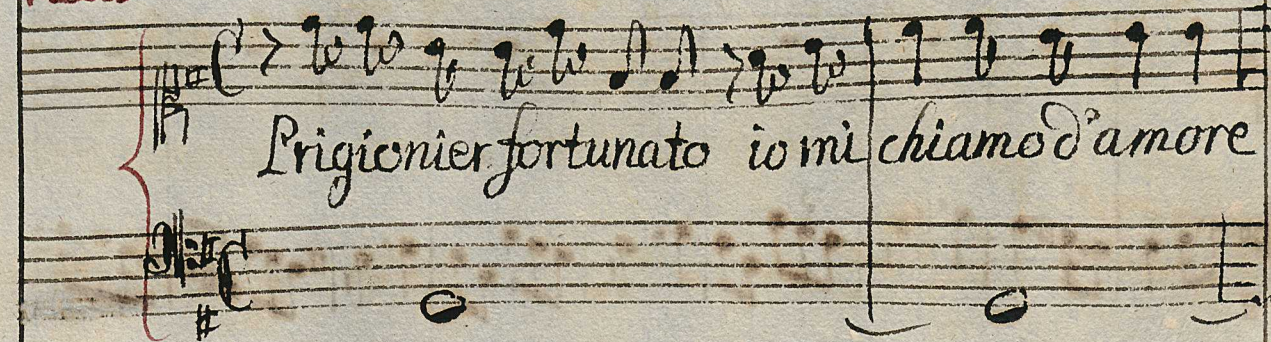 Prigionier fortunato io mi chiamo d'amore